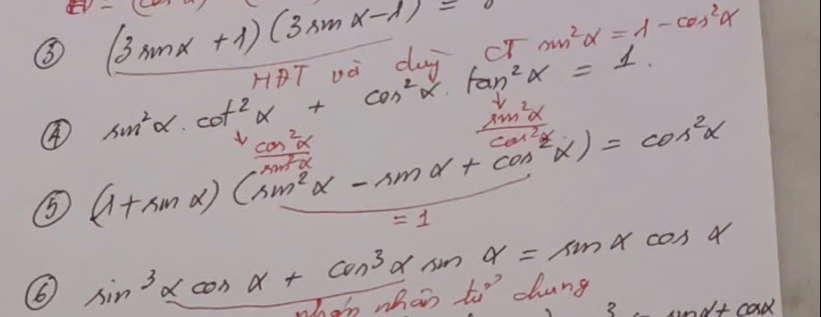 ③ (3 sin α + 1)(3 sin α − 1) =
HĐT và dùng CT sin²α = 1 − cos²α
④ sin²α . cot²α + cos²α . tan²α = 1.
↓ cos²α/sin²α ↓ sin²α/cos²α
⑤ (1 + sin α)(sin²α − sin α + cos²α) = cos²α
= 1
⑥ sin³α cos α + cos³α sin α = sin α cos α
nhân tử chung
sin α + cos α